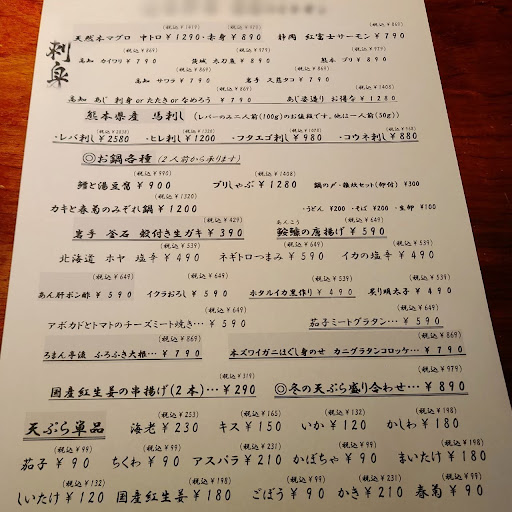 刺身
(税込¥1419) (税込¥979) (税込¥869)
天然本マグロ 中トロ¥1290・赤身¥890 静岡 紅富士サーモン¥790
(税込¥869) (税込¥979) (税込¥979)
高知 カイワリ¥790 茨城 水ダコ¥890 熊本 ブリ¥890
(税込¥869) (税込¥869)
高知 サワラ¥790 岩手 〆鯖タコ¥790
(税込¥869) (税込¥1408)
高知 あじ 刺身orたたきorなめろう ¥790 あじ姿造り お得な¥1280
熊本県産 馬刺し (レバーのみ二人前(100g)のお値段です。他は一人前(50g))
(税込¥2838) (税込¥1320) (税込¥1078) (税込¥968)
・レバ刺し¥2580 ・ヒレ刺し¥1200 ・フタエゴ刺し¥980 ・コウネ刺し¥880
◎お鍋各種 (2人前から承ります)
(税込¥990) (税込¥1408)
鱈と湯豆腐¥900 ブリしゃぶ¥1280 鍋の〆・雑炊セット(卵付)¥300
(税込¥1320)
カキと春菊のみぞれ鍋¥1200 ・うどん ¥200 ・そば ¥200 ・生卵 ¥100
(税込¥429) あんこう (税込¥649)
岩手 釜石 殻付き生ガキ¥390 鮟鱇の唐揚げ¥590
(税込¥539) (税込¥539) (税込¥539)
北海道 ホヤ 塩辛¥490 ネギトロつまみ¥490 イカの塩辛¥490
(税込¥649) (税込¥649) (税込¥539) (税込¥539)
あん肝ポン酢¥590 イクラおろし¥590 ホタルイカ黒作り¥490 炙り明太子¥490
(税込¥649) (税込¥649)
アボカドとトマトのチーズミート焼き…¥590 茄子ミートグラタン…¥590
(税込¥869) (税込¥869)
ろまん亭流 ふろふき大根…¥790 本ズワイガニほぐし身のせ カニグラタンコロッケ…¥790
(税込¥319) (税込¥979)
国産紅生姜の串揚げ(2本)…¥290 ◎冬の天ぷら盛り合わせ…¥890
(税込¥253) (税込¥165) (税込¥132) (税込¥198)
天ぷら単品 海老¥230 キス¥150 いか¥120 かしわ¥180
(税込¥99) (税込¥99) (税込¥231) (税込¥99) (税込¥198)
茄子¥90 ちくわ¥90 アスパラ¥210 かぼちゃ¥90 まいたけ¥180
(税込¥132) (税込¥198) (税込¥99) (税込¥231) (税込¥99)
しいたけ¥120 国産紅生姜¥180 ごぼう¥90 かき¥210 春菊¥90